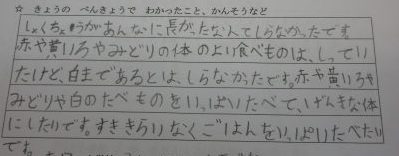 ☆ きょうの べんきょうで わかったこと、かんそうなど
しょくちょうがあんなに長がったなんてしらなかったです。
赤や黄いろやみどりの体のよい食べものは、しってい
たけど、白まであるとは、しらなかったです。赤や黄いろや
みどりや白のたべものをいっぱいたべて、げんきな体
にしたいです。すききらいなくごはんをいっぱいたべたい
です。